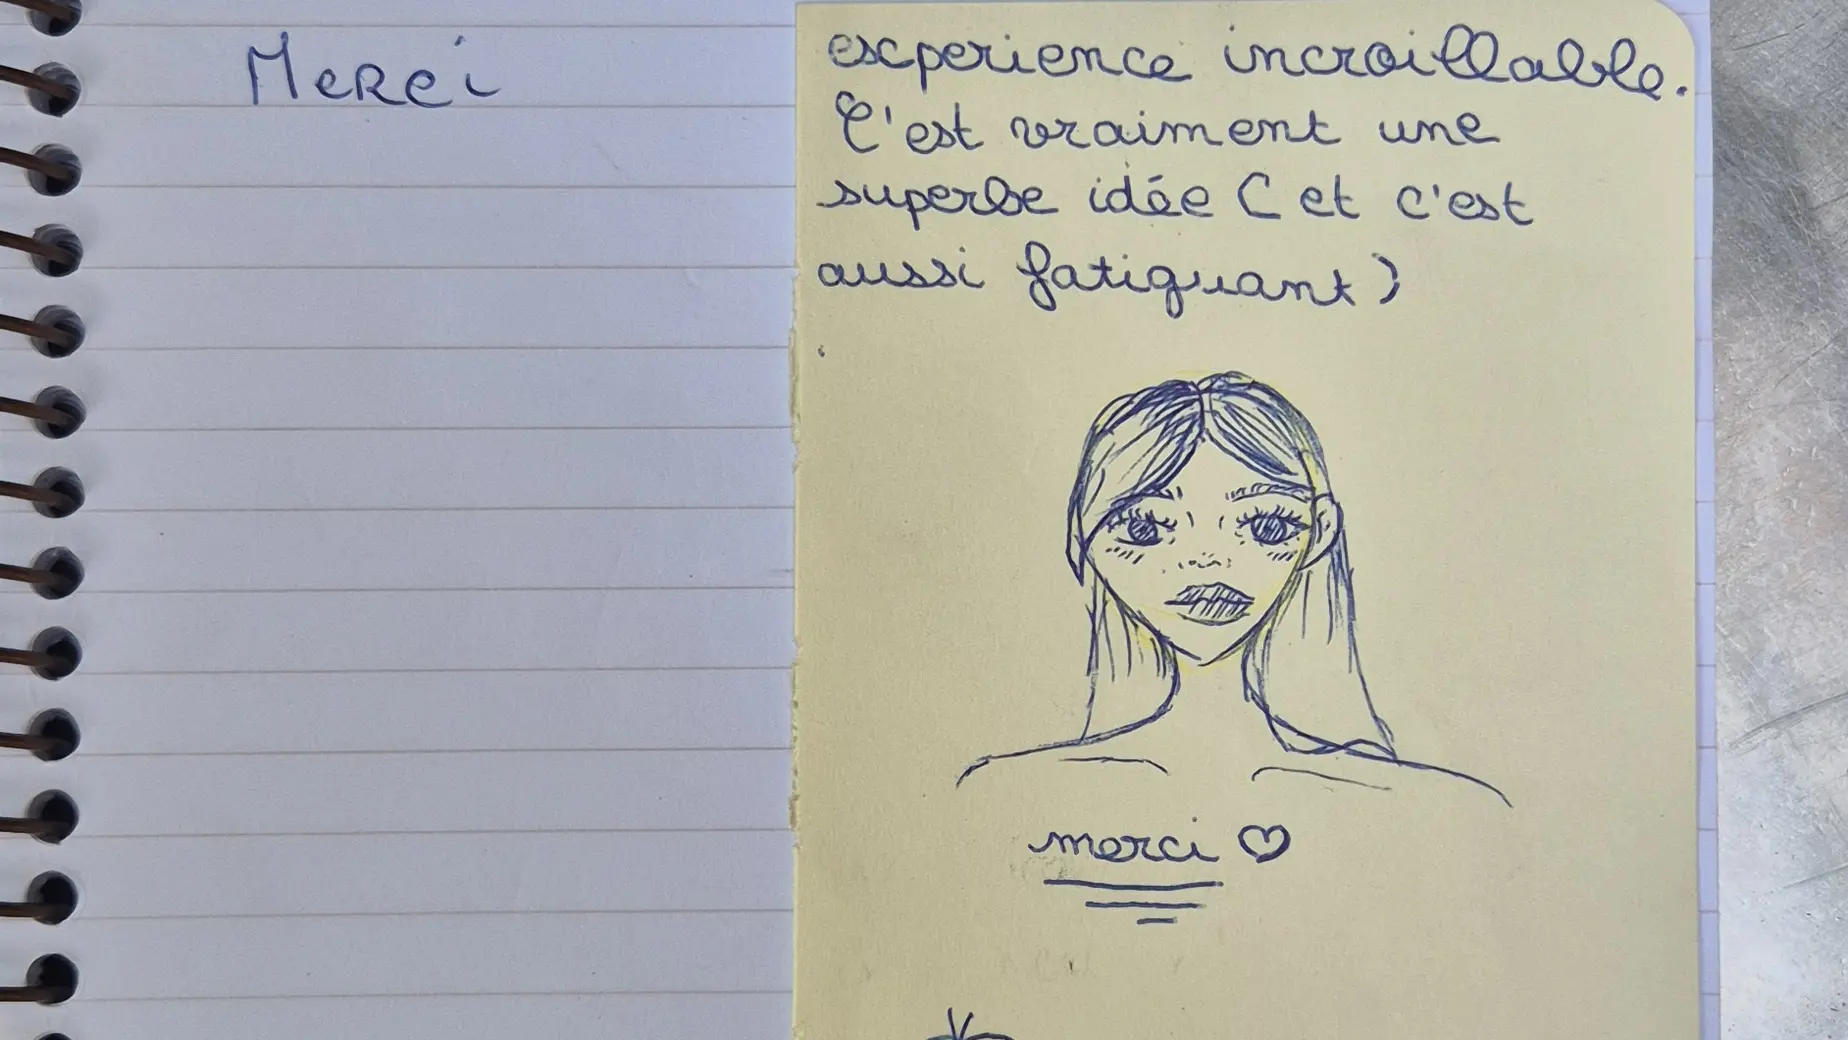 Merci
escperience incroillable.
C'est vraiment une
superbe idée (et c'est
aussi fatiguant)
merci ♡